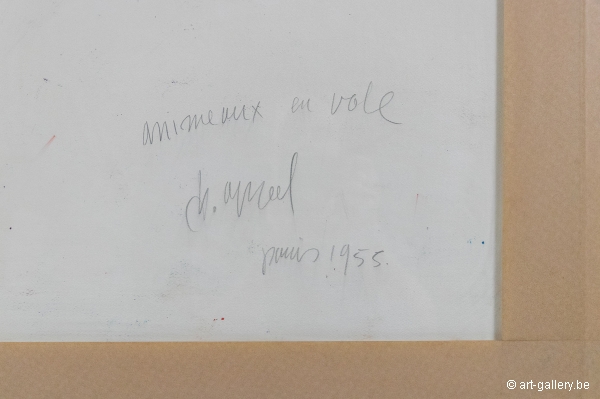 animeaux en vole
ch. appel
paris 1955.
© art-gallery.be